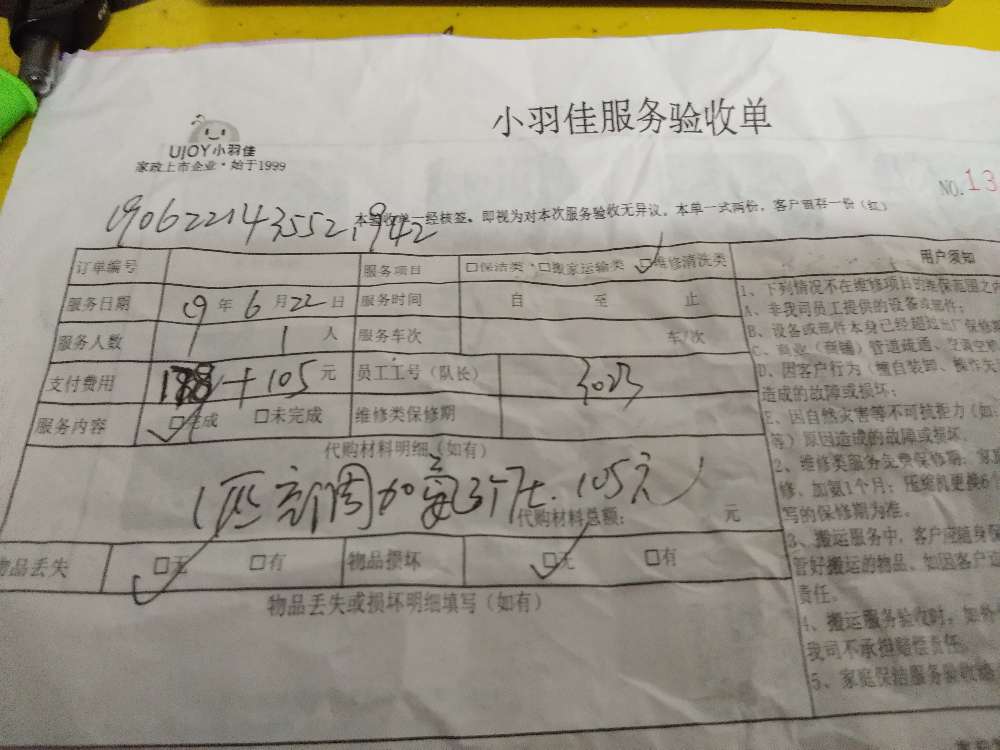 小羽佳服务验收单
UJOY小羽佳
家政上市企业·始于1999
NO.13
190622143552942
本验收单一经核签，即视为对本次服务验收无异议，本单一式两份，客户留存一份（红）
订单编号 服务项目 □保洁类 □搬家运输类 □维修清洗类
服务日期 19年6月22日 服务时间 自 至 止
服务人数 1人 服务车次 车/次
支付费用 +105元 员工工号（队长） 3023
服务内容 □完成 □未完成 维修类保修期
代购材料明细（如有）
1匹空调加氨3个压.105元
代购材料总额： 元
物品丢失 □无 □有 物品损坏 □无 □有
物品丢失或损坏明细填写（如有）
用户须知
1、下列情况不在维修项目的维保范围之
A、非我司员工提供的设备或部件；
B、设备或部件本身已经超过出厂保修
C、商业（商铺）管道疏通、空调空
D、因客户行为（擅自装卸、操作失
造成的故障或损坏；
E、因自然灾害等不可抗拒力（如：
等）原因造成的故障或损坏.
2、维修类服务免费保修期：家
修，加氨1个月；压缩机更换6个
写的保修期为准。
3、搬运服务中，客户应随身保
管好搬运的物品，如因客户
责任。
4、搬运服务验收时，如
我司不承担赔偿责任。
5、家庭保洁服务验收